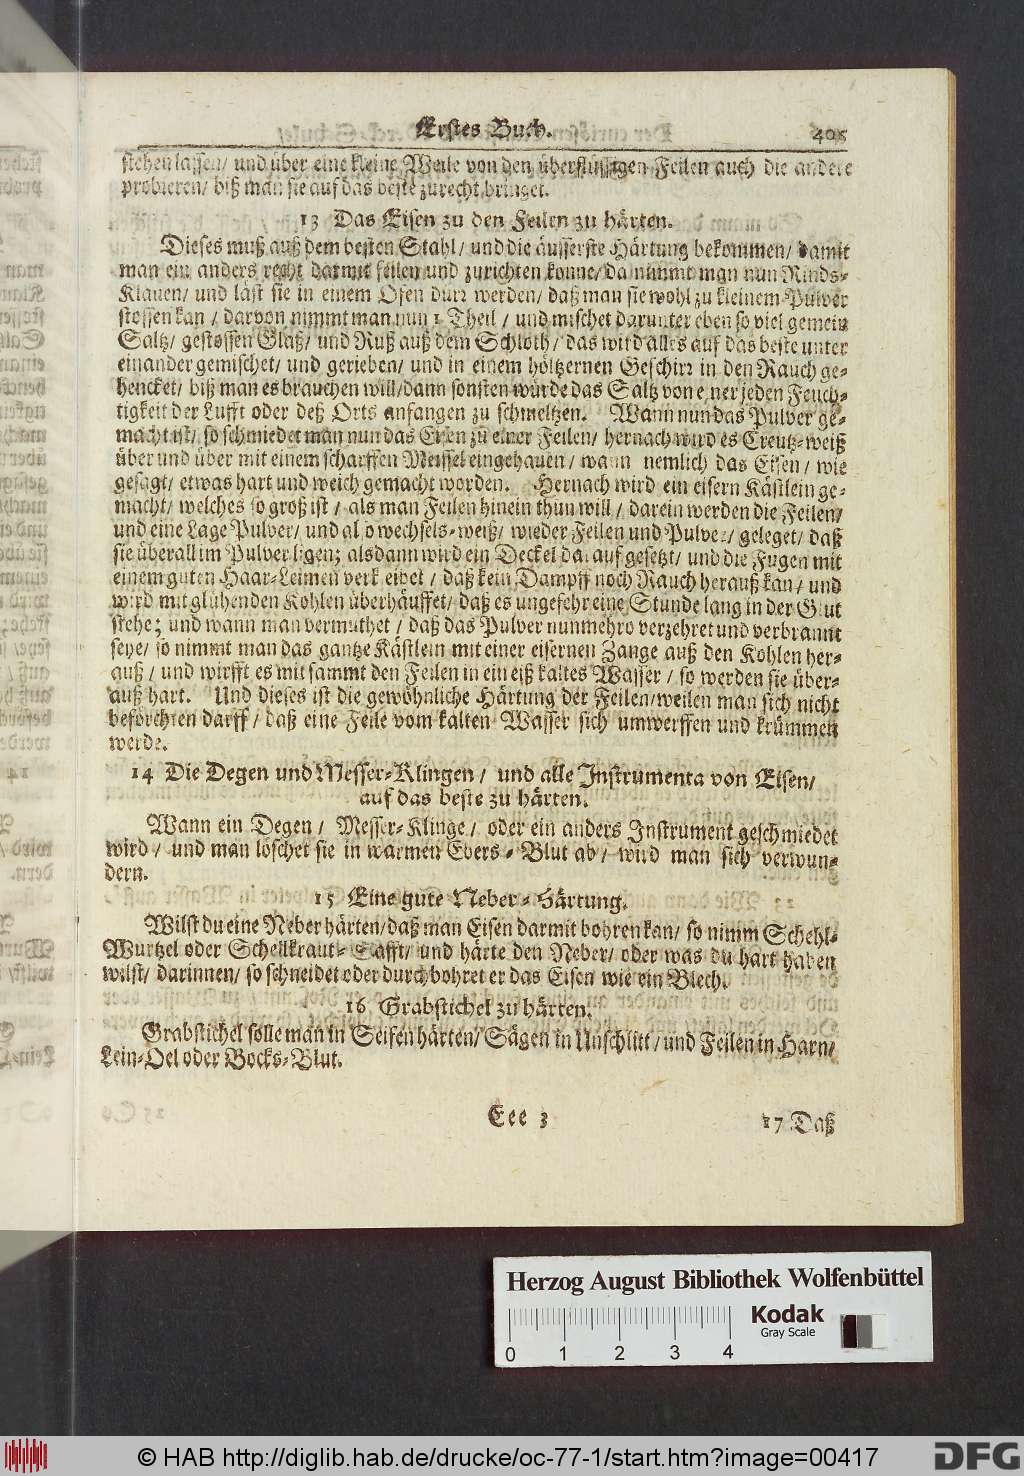 Erstes Buch. 405
stehen lassen/ und über eine kleine Weile von den überflüssigen Feilen auch die andere
probieren/ biß man sie auf das beste zurecht bringet.
13 Das Eisen zu den Feilen zu härten.
Dieses muß auß dem besten Stahl/ und die äusserste Härtung bekommen/ damit
man ein anders recht darmit feilen und zurichten könne/ da nimmt man nun Rinds-
Klauen/ und läst sie in einem Ofen dürr werden/ daß man sie wohl zu kleinem Pulver
stossen kan/ darvon nimmt man nun 1 Theil/ und mischet darunter eben so viel gemein
Saltz/ gestossen Glaß/ und Ruß auß dem Schloth/ das wird alles auf das beste unter
einander gemischet/ und gerieben/ und in einem höltzernen Geschirr in den Rauch ge-
hencket/ biß man es brauchen will/ dann sonsten würde das Saltz von einer jeden Feuch-
tigkeit der Lufft oder deß Orts anfangen zu schmeltzen. Wann nun das Pulver ge-
macht ist/ so schmiedet man nun das Eisen zu einer Feilen/ hernach wird es Creutz-weiß
über und über mit einem scharffen Meissel eingehauen/ wann nemlich das Eisen/ wie
gesagt/ etwas hart und weich gemacht worden. Hernach wird ein eisern Kästlein ge-
macht/ welches so groß ist/ als man Feilen hinein thun will/ darein werden die Feilen/
und eine Lage Pulver/ und also wechsels-weiß/ wieder Feilen und Pulver/ geleget/ daß
sie überall im Pulver ligen; alsdann wird ein Deckel darauf gesetzt/ und die Fugen mit
einem guten Haar-Leimen verkleibet/ daß kein Dampff noch Rauch herauß kan/ und
wird mit glühenden Kohlen überhäuffet/ daß es ungefehr eine Stunde lang in der Glut
stehe; und wann man vermuthet/ daß das Pulver nunmehro verzehret und verbrannt
seye/ so nimmt man das gantze Kästlein mit einer eisernen Zange auß den Kohlen her-
auß/ und wirfft es mit sammt den Feilen in ein eiß kaltes Wasser/ so werden sie über-
auß hart. Und dieses ist die gewöhnliche Härtung der Feilen/ weilen man sich nicht
beförchten darff/ daß eine Feile vom kalten Wasser sich umwerffen und krümmen
werde.
14 Die Degen und Messer-Klingen/ und alle Instrumenta von Eisen/
auf das beste zu härten.
Wann ein Degen/ Messer-Klinge/ oder ein anders Instrument geschmiedet
wird/ und man löschet sie in warmen Ebers-Blut ab/ wird man sich verwun-
dern.
15 Eine gute Neber-Härtung.
Wilst du eine Neber härten/ daß man Eisen darmit bohren kan/ so nimm Schehl-
Wurtzel oder Schellkraut-Safft/ und härte den Neber/ oder was du hart haben
wilst/ darinnen/ so schneidet oder durchbohret er das Eisen wie ein Blech.
16 Grabstichel zu härten.
Grabstichel solle man in Seifen härten/ Sägen in Unschlitt/ und Feilen in Harn/
Lein-Oel oder Bocks-Blut.
Eee 3 17 Daß
Herzog August Bibliothek Wolfenbüttel
Kodak
Gray Scale
0 1 2 3 4
© HAB http://diglib.hab.de/drucke/oc-77-1/start.htm?image=00417
DFG